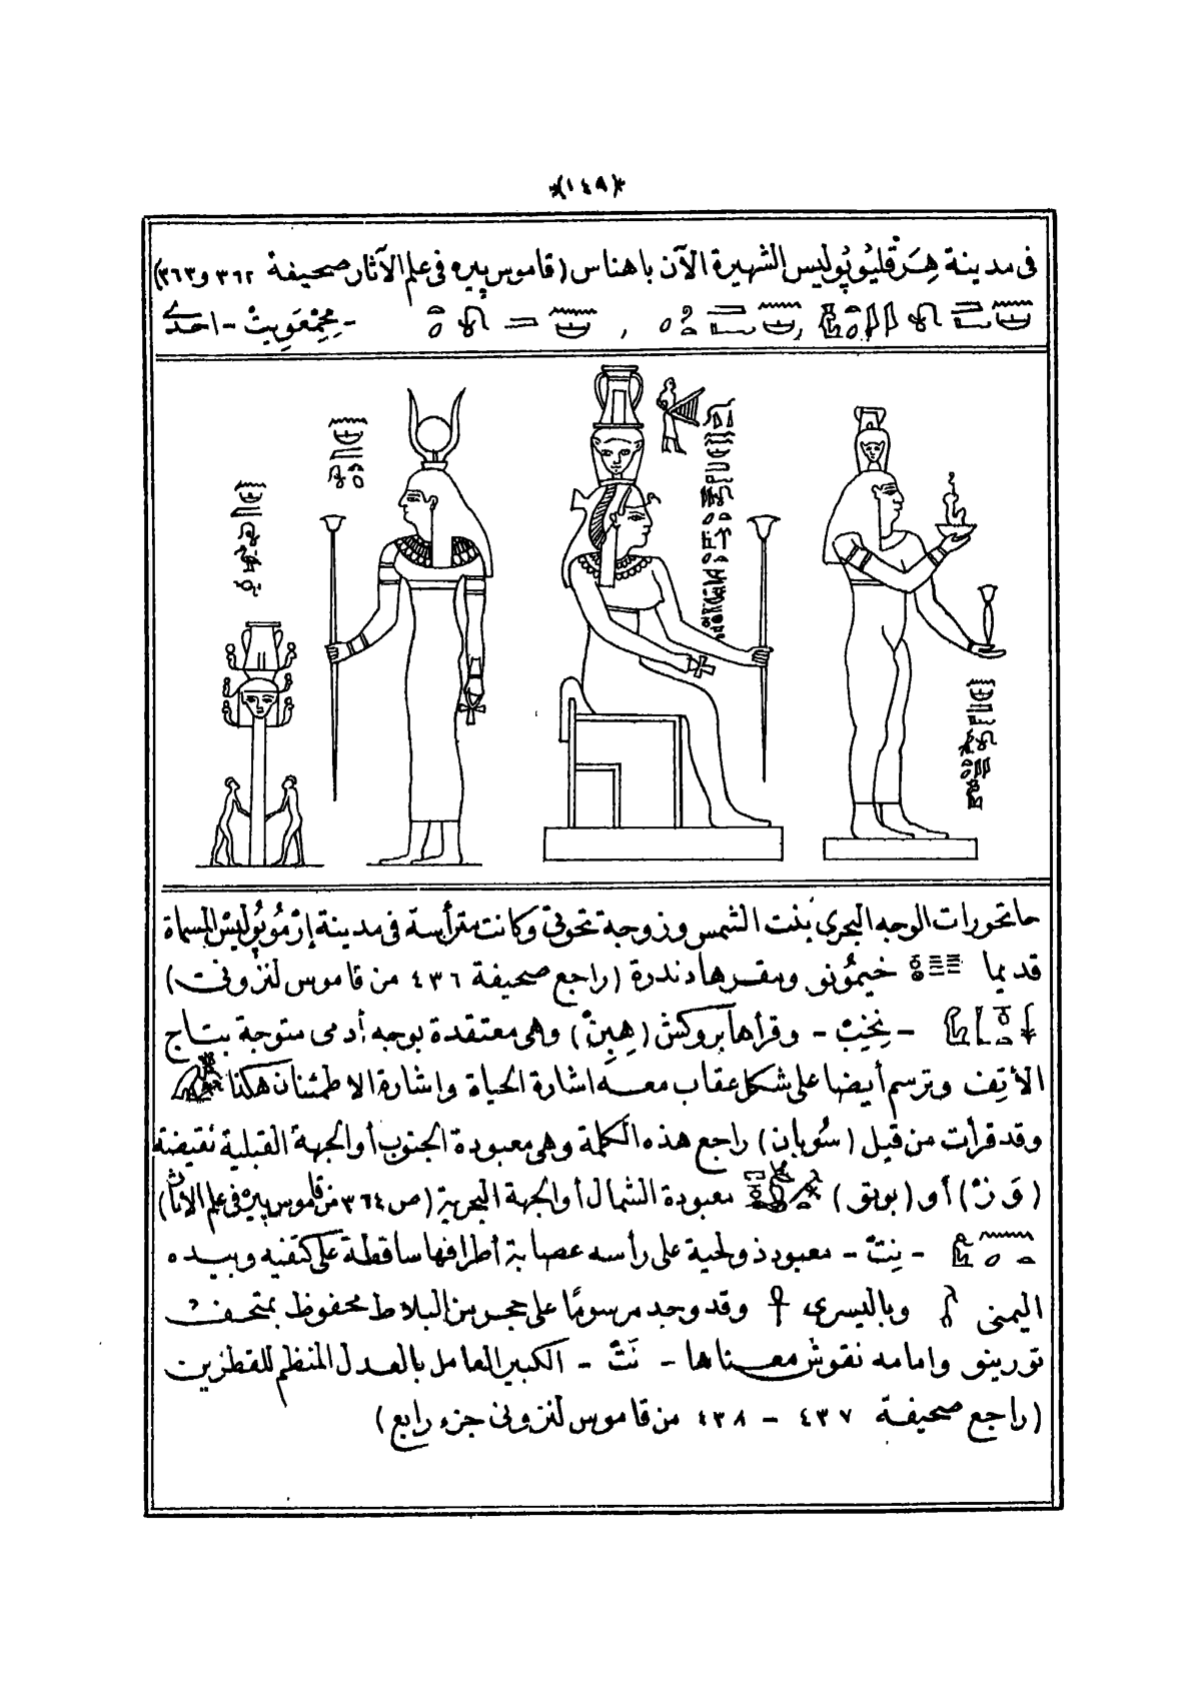 *(١٤٩)*
فى مدينة هِرَقْليُوپُوليس الشهيرة الآن باهناس (قاموس پيره فى علم الآثار صحيفة ٣٦٢ و٣٦٣)
- نِحِمْعَوِيتْ - احدى
حاتحورات الوجه البحرى بنت الشمس وزوجة تحوتى وكانت مترأسة فى مدينة إرْمُوپُوليْس المسماة
قديما خيمُونو ومقرها دندرة (راجع صحيفة ٤٣٦ من قاموس لنزونى)
- نِخنِبْ - وقرأها بروكش (هِبِنْ) وهى معتقدة بوجه أدمى متوجة بتاج
الأتِف وترسم أيضا على شكل عقاب معه اشارة الحياة واشارة الاطمئنان هكذا
وقد قرأت من قبل (سُوبان) راجع هذه الكلمة وهى معبودة الجنوب أو الجهة القبلية نقيضة
(وَزْ) أو (بوتو) معبودة الشمال أو الجهة البحرية (ص ٣٦٤ من قاموس پيره فى علم الآثار)
- نِتْ - معبود ذو لحية على رأسه عصابة أطرافها ساقطة على كتفيه وبيده
اليمنى وباليسرى وقد وجد مرسومًا على حجر من البلاط محفوظ بمتحف
تورينو وامامه نقوش معناها - نَتْ - الكبير العامل بالعدل المنظم للقطرين
(راجع صحيفة ٤٣٧ - ٤٣٨ من قاموس لنزونى جزء رابع)